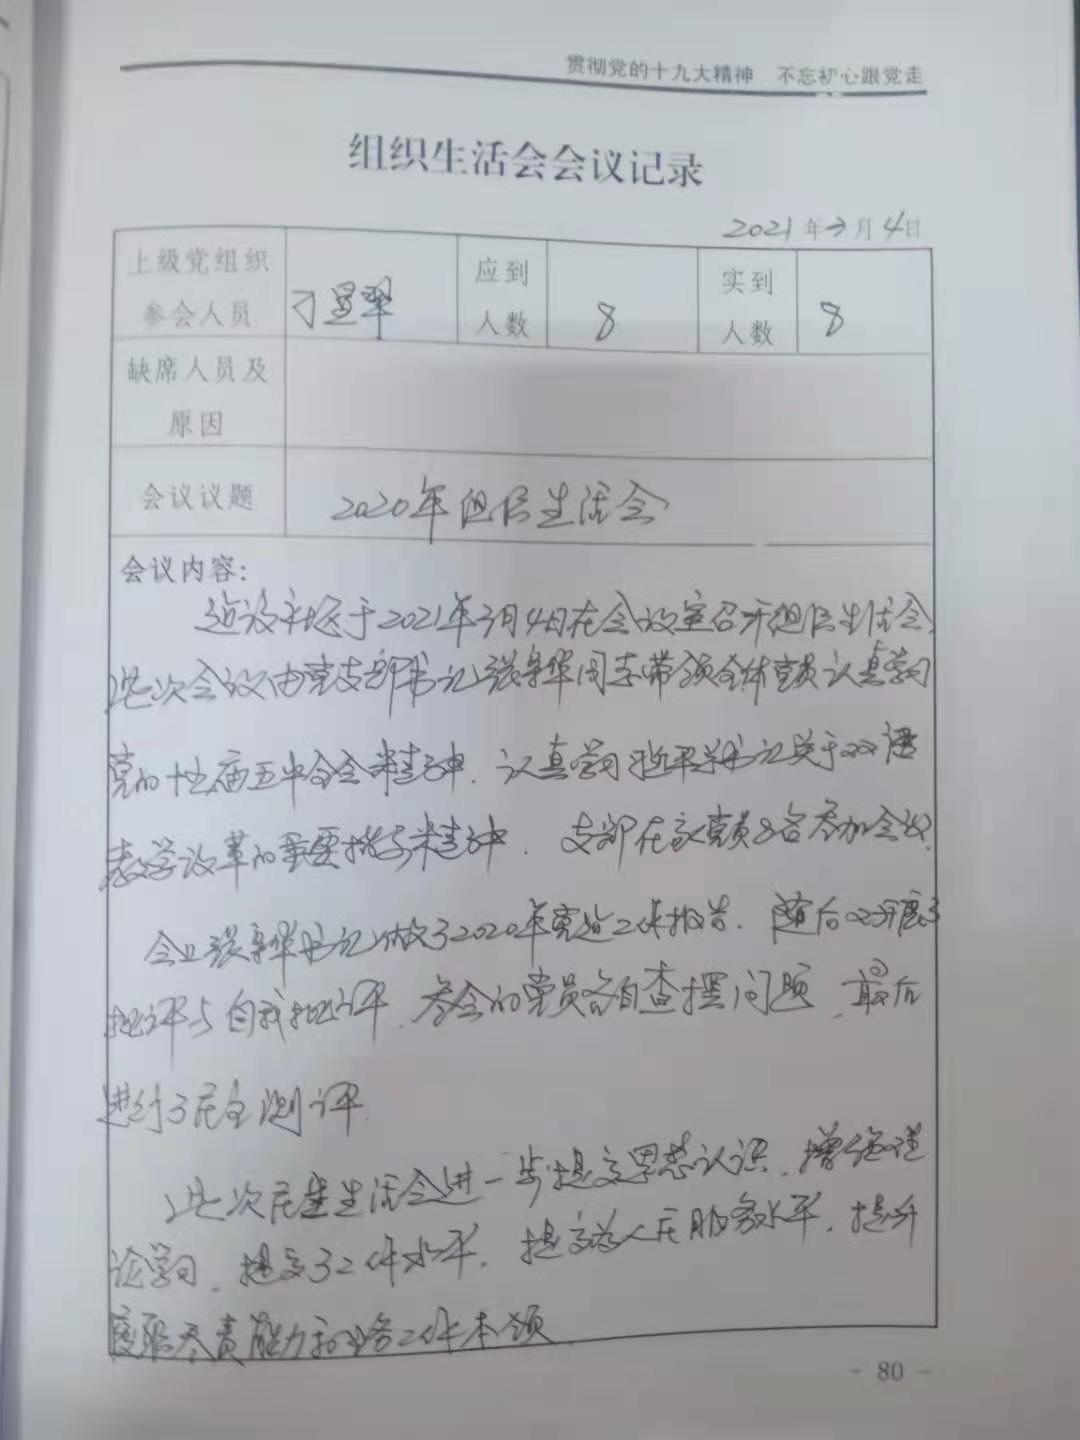 贯彻党的十九大精神 不忘初心跟党走
组织生活会会议记录
2021年3月4日
上级党组织
参会人员
应到
人数
8
实到
人数
8
缺席人员及
原因
会议议题
2020年组织生活会
会议内容:
于2021年3月4日在会议室召开组织生活会,
此次会议由党支部书记张华同志带领全体党员认真学习
党的十九届五中全会精神.认真学习近平总书记关于双语
教学改革的重要指示精神.支部在家党员8名参加会议.
会上张华书记做了2020年党建工作报告.随后又开展了
批评与自我批评.参会的党员各自查摆问题.最后
进行了民主测评.
此次民主生活会进一步提高思想认识.增强理
论学习.提高了工作水平.提高为人民服务水平.提升
履职尽责能力和业务工作本领
- 80 -